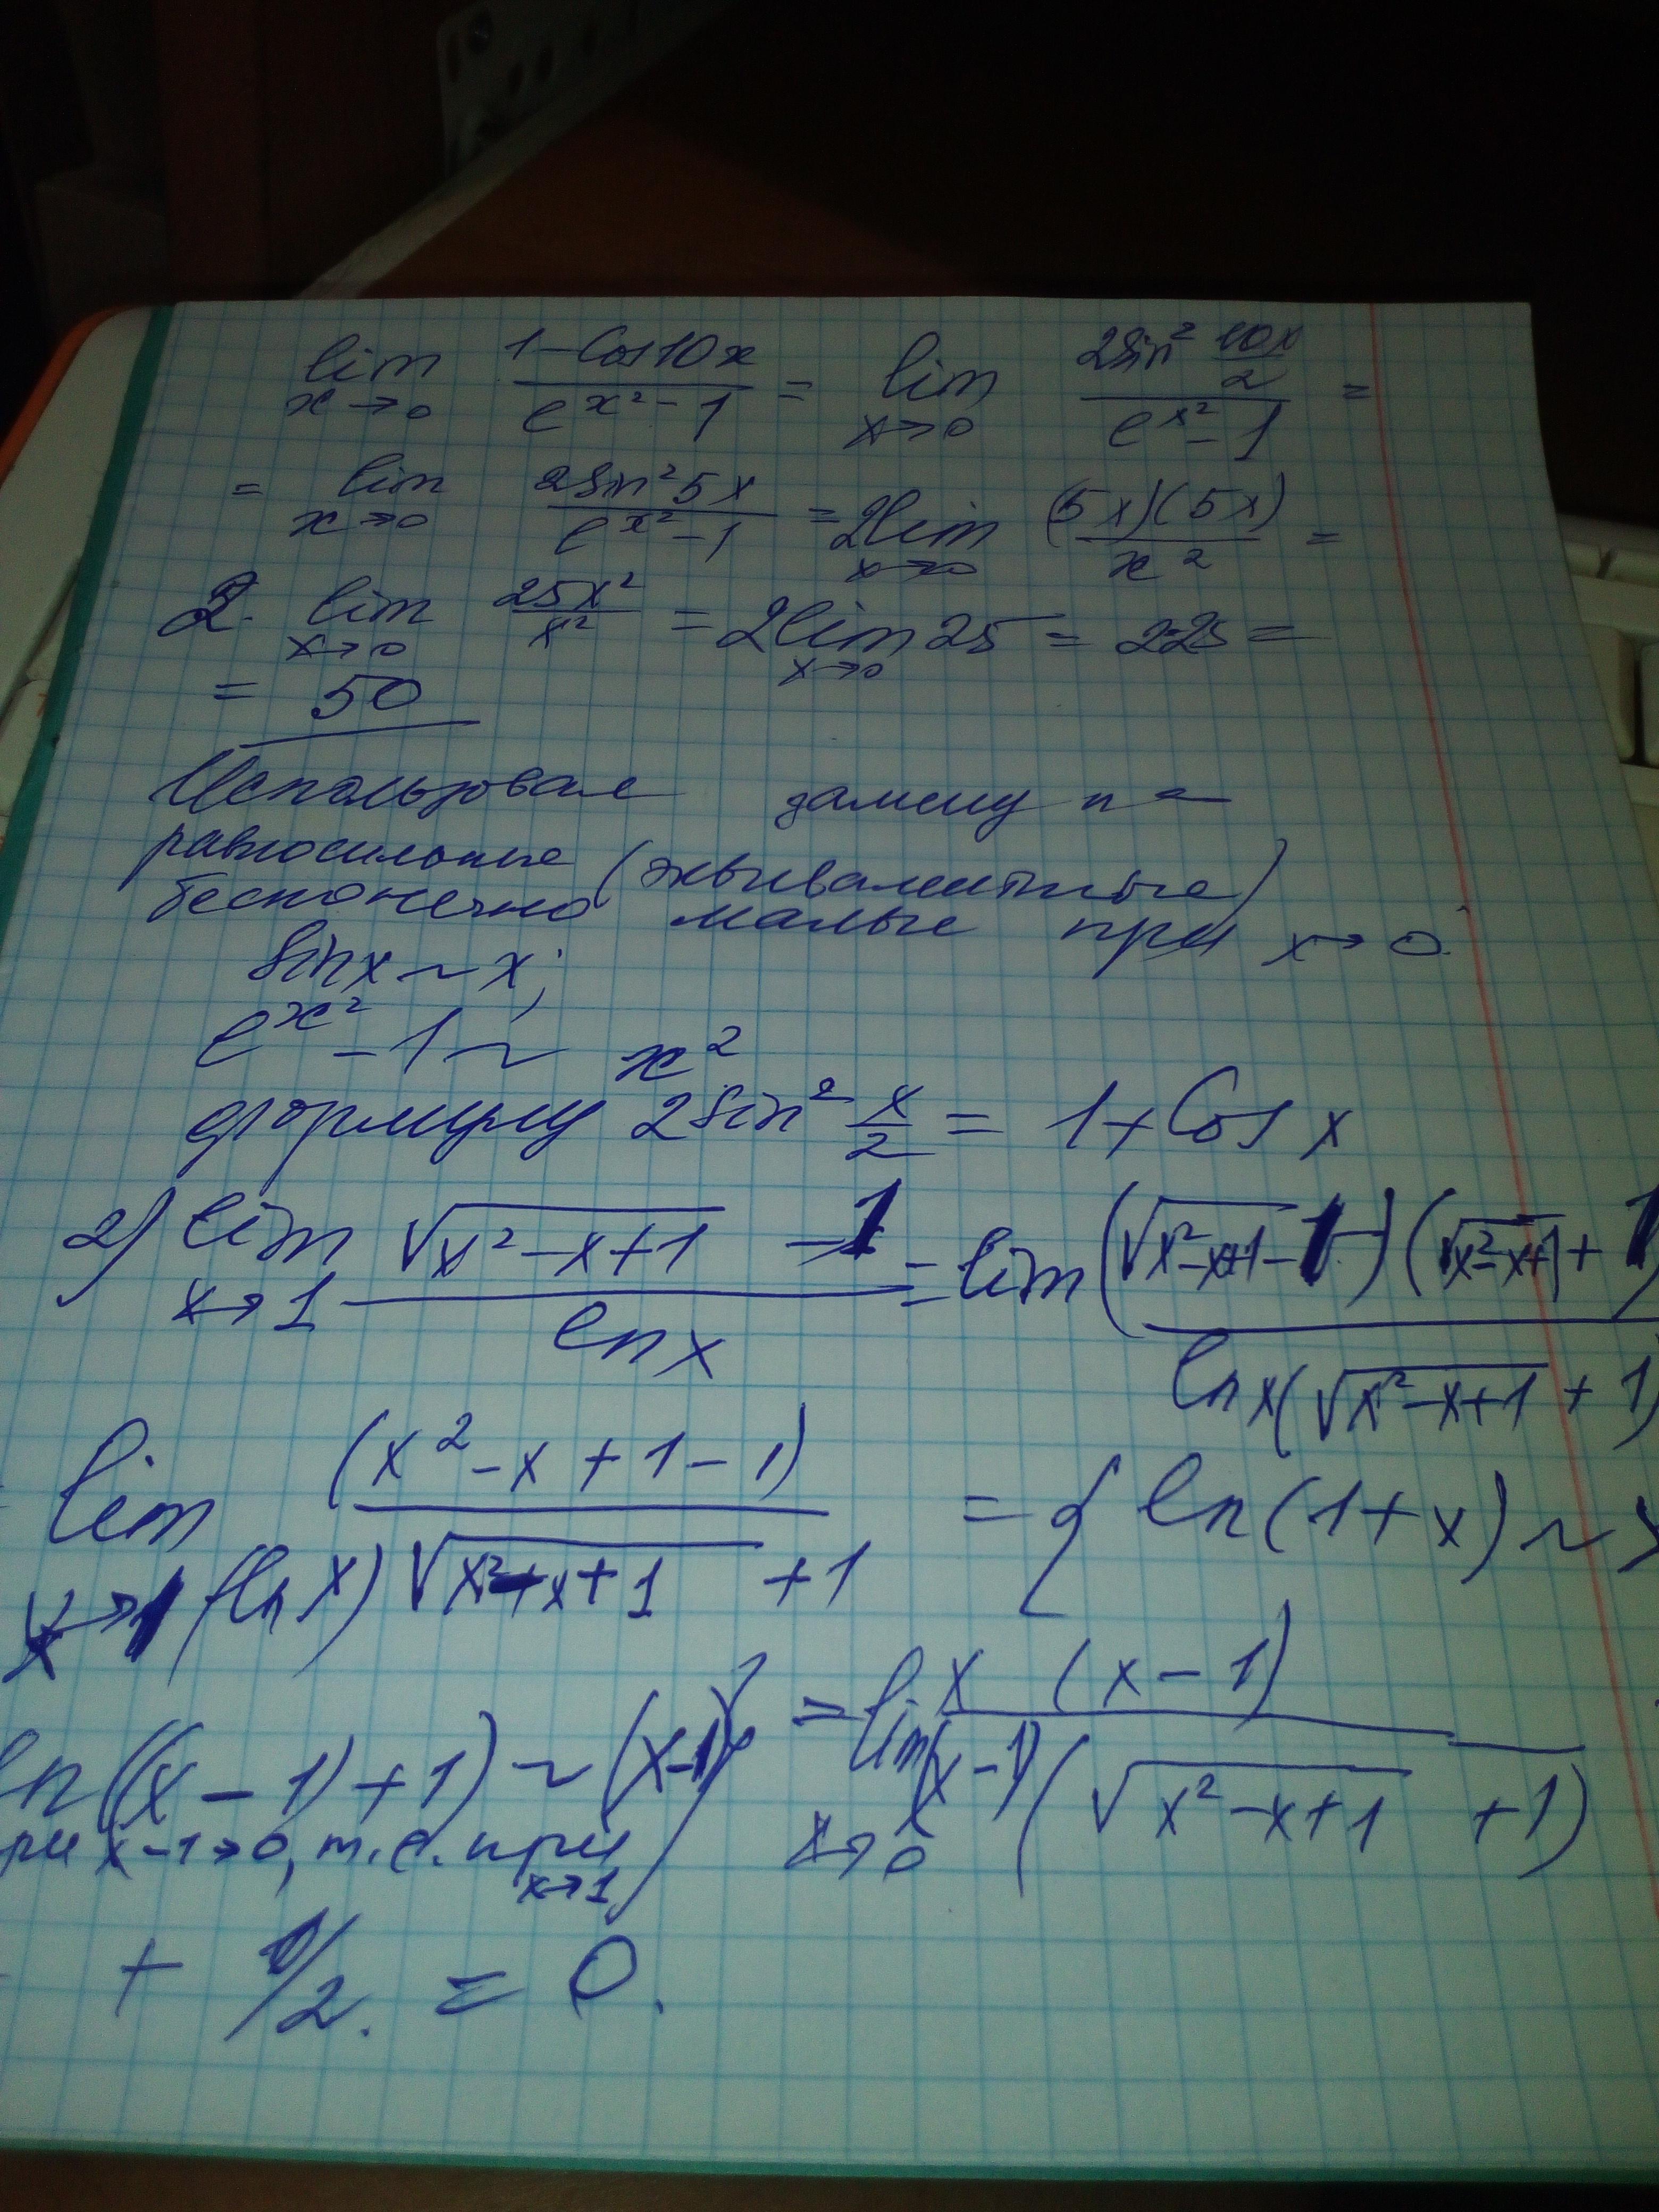 lim x→0 (1-Cos10x)/(e^(x²)-1) = lim x→0 (2Sin² 10x/2)/(e^(x²)-1) =
= lim x→0 (2Sin²5x)/(e^(x²)-1) = 2lim x→0 (5x)(5x)/x² =
2· lim x→0 25x²/x² = 2lim x→0 25 = 2·25 =
= 50
Использовал замену на
равносильные (эквивалентные)
бесконечно малые при x→0.
Sinx ~ x;
e^(x²) - 1 ~ x²
формулу 2Sin² x/2 = 1+Cos x
2) lim x→1 (√(x²-x+1) - 1)/(ln x) = lim (√(x²-x+1) - 1)(√(x²-x+1) + 1)/(ln x(√(x²-x+1) + 1)
lim x→1 (x²-x+1-1)/((ln x)√(x²+x+1) + 1) = { ln(1+x) ~ x
ln((x-1)+1) ~ (x-1) = lim x→0 x (x-1)/((x-1)(√(x²-x+1) +1))
при x-1→0, т.е. при x→1 }
+ 0/2. = 0.